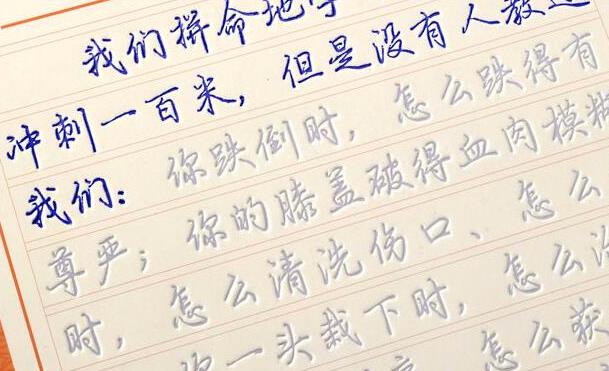 我们拼命地学
冲刺一百米，但是没有人教过
我们：你跌倒时，怎么跌得有
尊严；你的膝盖破得血肉模糊
时，怎么清洗伤口、怎么
你一头栽下时，怎么治
怎么获